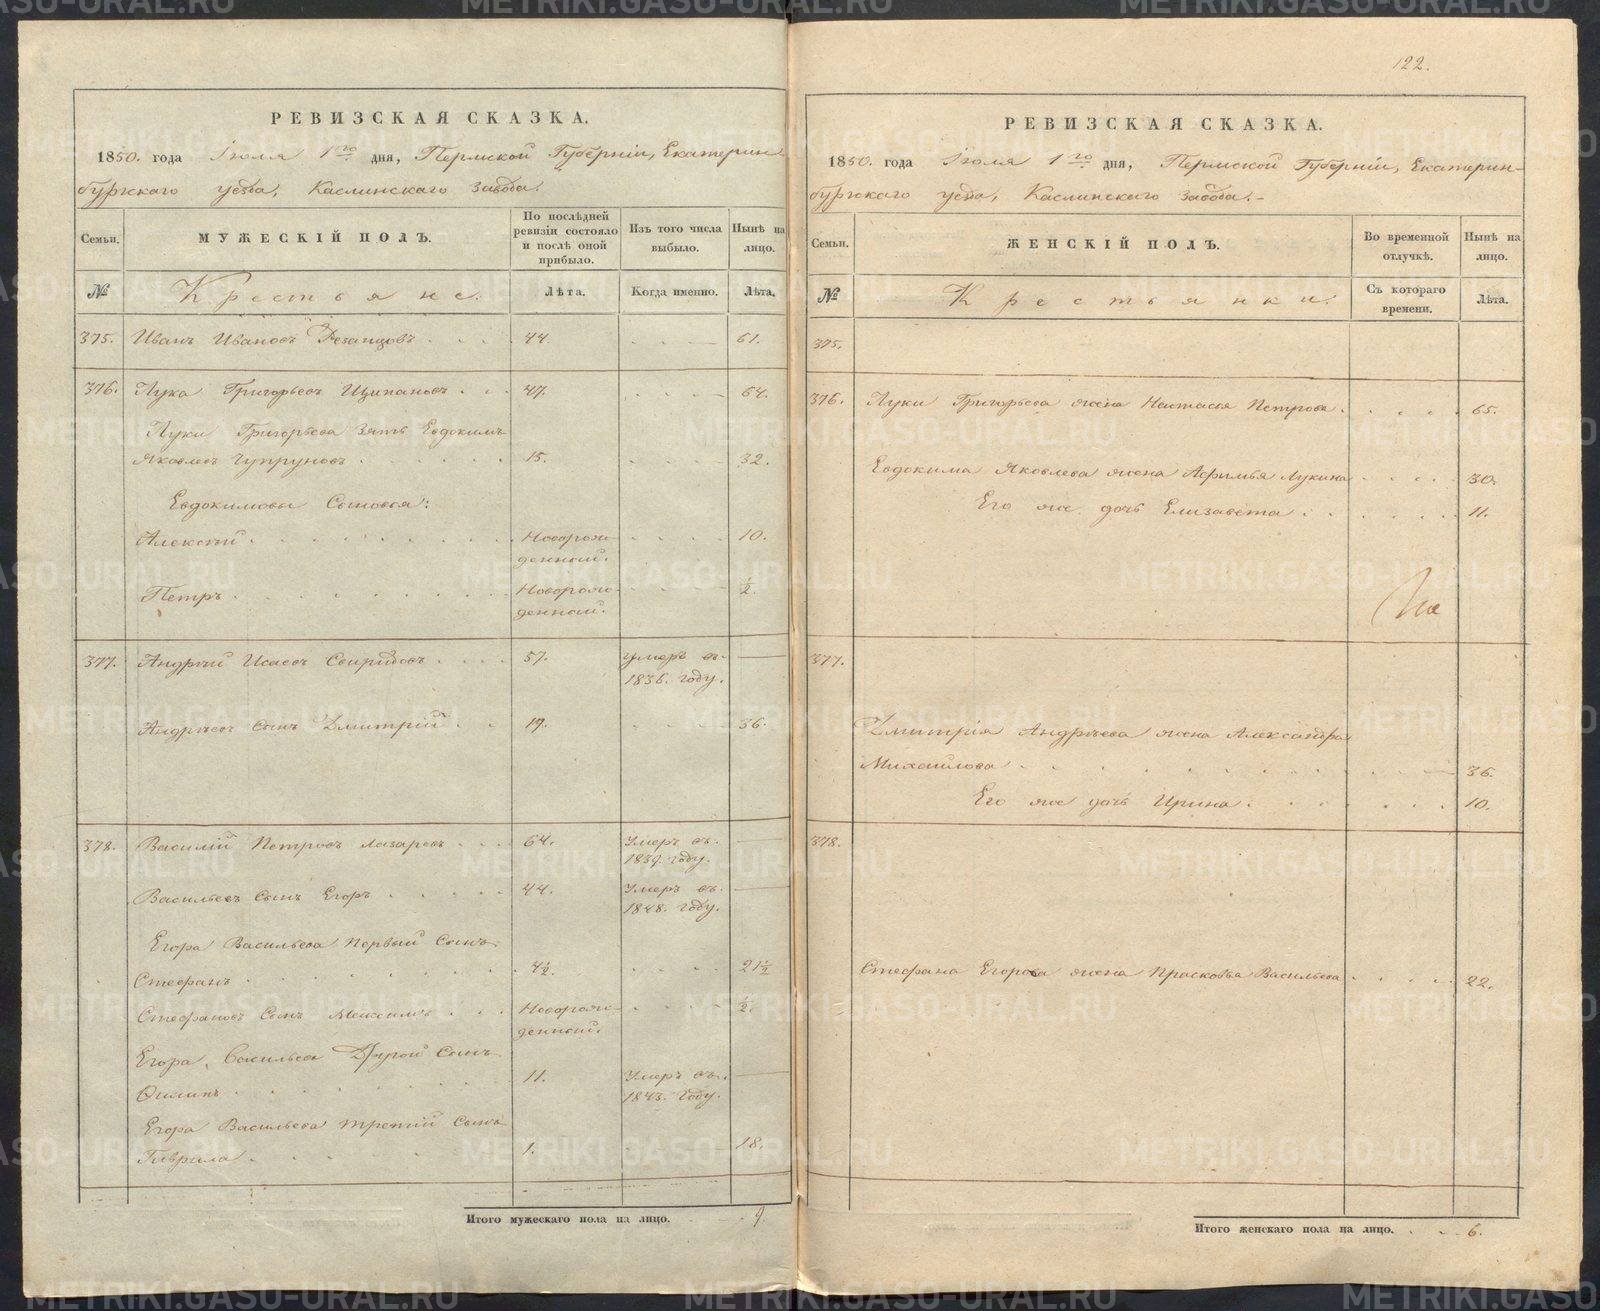 122.
РЕВИЗСКАЯ СКАЗКА.
1850. года Іюля 1го дня, Пермской Губерніи, Екатерин-
бургскаго уезда, Каслинскаго Завода.
Семьи.
МУЖЕСКІЙ ПОЛЪ.
По послѣдней ревизіи состояло и послѣ оной прибыло.
Изъ того числа выбыло.
Нынѣ на лицо.
№
Крестьяне.
Лѣта.
Когда именно.
Лѣта.
375. Иванъ Ивановъ 44. 61.
376. Лука Григорьевъ Щипановъ 47. 64.
Луки Григорьева Зять Евдокимъ
Яковлевъ Чупруновъ 15. 32.
Евдокимовы Сыновья:
Алексѣй Новорож-
денный. 10.
Петръ Новорож-
денный. ½.
377. Андрѣй Исаевъ Свиридовъ 57. умеръ въ
1836. году.
Андрѣевъ сынъ Дмитрій 19. 36.
378. Василій Петровъ Лазаревъ 64. Умеръ въ
1839. году.
Васильевъ сынъ Егоръ 44. Умеръ въ
1848. году.
Егора Васильева Первый Сынъ
Стефанъ 4½. 21½
Стефановъ Сынъ Максимъ Новорож-
денный. ½.
Егора Васильева Другой Сынъ
Филипъ 11. Умеръ въ
1843. году.
Егора Васильева третій Сынъ
Гаврила 1. 18.
Итого мужескаго пола на лицо. 9.
РЕВИЗСКАЯ СКАЗКА.
1850. года Іюля 1го дня, Пермской Губерніи, Екатерин-
бургскаго уезда, Каслинскаго Завода.
Семьи.
ЖЕНСКІЙ ПОЛЪ.
Во временной отлучкѣ.
Нынѣ на лицо.
№
Крестьянки.
Съ котораго времени.
Лѣта.
375.
376. Луки Григорьева жена Настасья Петрова 65.
Евдокима Яковлева жена Афимья Лукина 30.
Его же дочь Елизавета 11.
377.
Дмитрія Андрѣева жена Александра
Михаилова 36.
Его же дочь Ирина 10.
378.
Стефана Егорова жена Прасковья Васильева 22.
Итого женскаго пола на лицо. 6.
METRIKI.GASO-URAL.RU